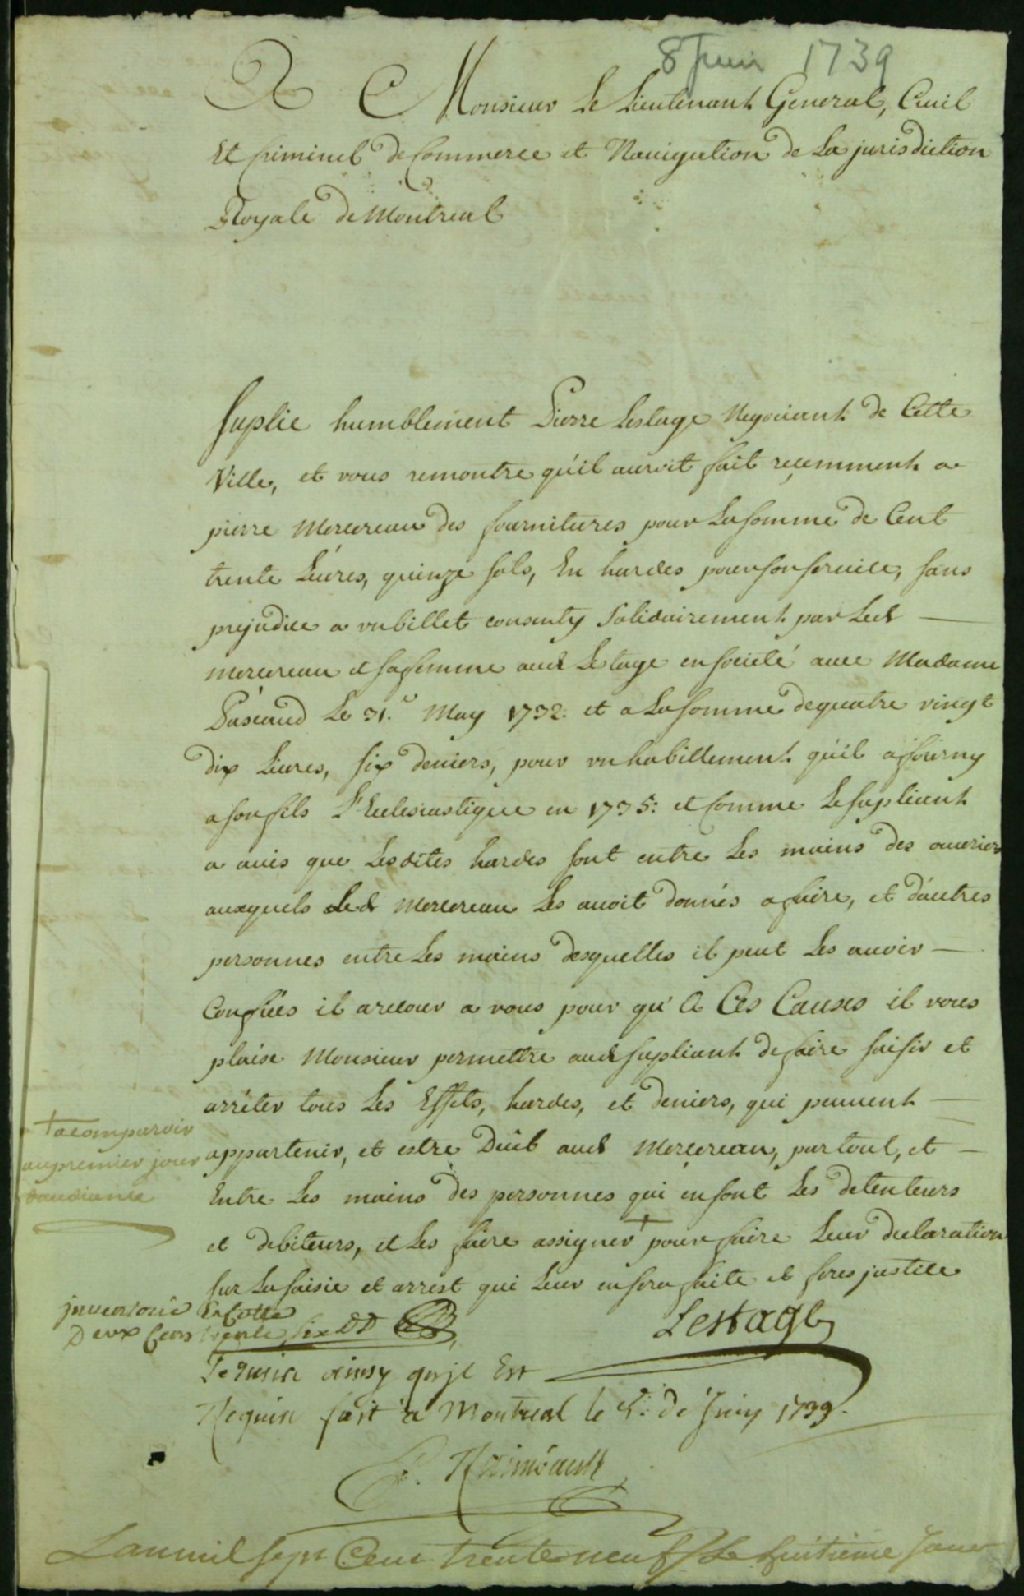 8 Juin 1739
A Monsieur Le Lieutenant General, Ciuil
Et Criminel de Commerce et Nauigation de La jurisdiction
Royale de Montreal
Suplie humblement Pierre Lestage Negociant de Cette
Ville, et vous remontre qu'il auroit fait reçemment a
pierre Mercereau des fournitures pour La somme de Cent
trente Liures, quinze sols, En hardes pour son seruice, sans
prejudice a un billet consenty Solidairement par Led
mercereau et sa femme aud Lestage en societé auec Madame
Pascaud Le 31.e May 1732. et a La somme de quatre vingt
dix Liures, six deniers, pour un habillement qu'il a fourny
a son fils L'Eclesiastique en 1735: et Comme Le supliant
a auis que Lesdites hardes sont entre Les mains des ouuriers
auxquels Led Mercereau Les auoit donnés a faire, et d'autres
personnes entre Les mains desquelles il peut Les auoir
Confiées il a recour a vous pour qu'A Ces Causes il vous
plaise Monsieur permettre aud supliant de faire saisir et
arréter tous Les Effets, hardes, et deniers, qui peuuent
appartenir, et estre Duët aud Mercereau, par tout, et
Entre Les mains des personnes qui en sont Les detenteurs
et debiteurs, et Les faire assigner + pour faire Leur declaration
sur La saisie et arrest qui Leur en sera faite et feres justice
+ a comparoir
au premier jour
d'audiance
Lestage
jnuentorié En Cotte
Deux Cens trente six
Permis ainsy qu'jl Est
Requis fait a Montreal le 5e. de Juin 1739.
Raimbault
L'an mil sept Cent trente neuf Le huitieme Jour